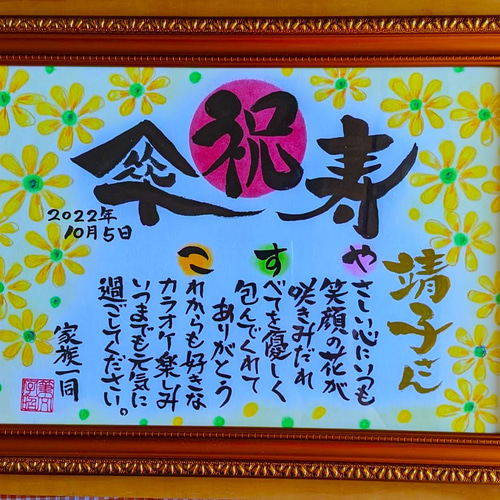 傘祝寿
2022年
10月5日
靖子さん
やさしい心にいつも
笑顔の花が
咲きみだれ
すべてを優しく
包んでくれて
ありがとう
これからも好きな
カラオケ楽しみ
いつまでも元気に
過ごしてください。
家族一同